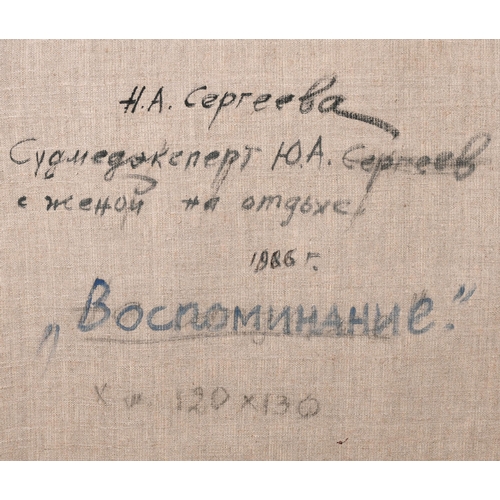 Н.А. Сергеева
Судмедэксперт Ю.А. Сергеев
с женой на отдыхе
1986 г.
„Воспоминание."
х м. 120х130